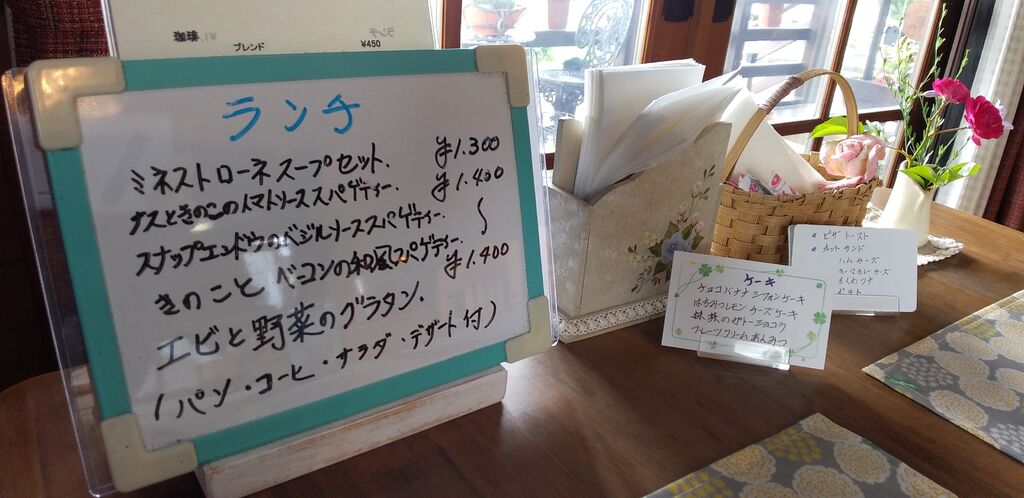 ブレンド ¥450
ランチ
ミネストローネスープセット. ¥1.300
ナスときのこのトマトソーススパゲティー. ¥1.400
スナップエンドウのバジルソーススパゲティー. 〜
きのことベーコンの和風スパゲティー. ¥1.400
エビと野菜のグラタン.
(パン・コーヒー・サラダ・デザート付)
ケーキ
チョコバナナシフォンケーキ
はちみつレモンチーズケーキ
抹茶のガトーショコラ
フルーツクリームあんみつ
* ピザトースト
* ホットサンド
ハムチーズ
キーマカレーチーズ
ちくわツナ
ポテト